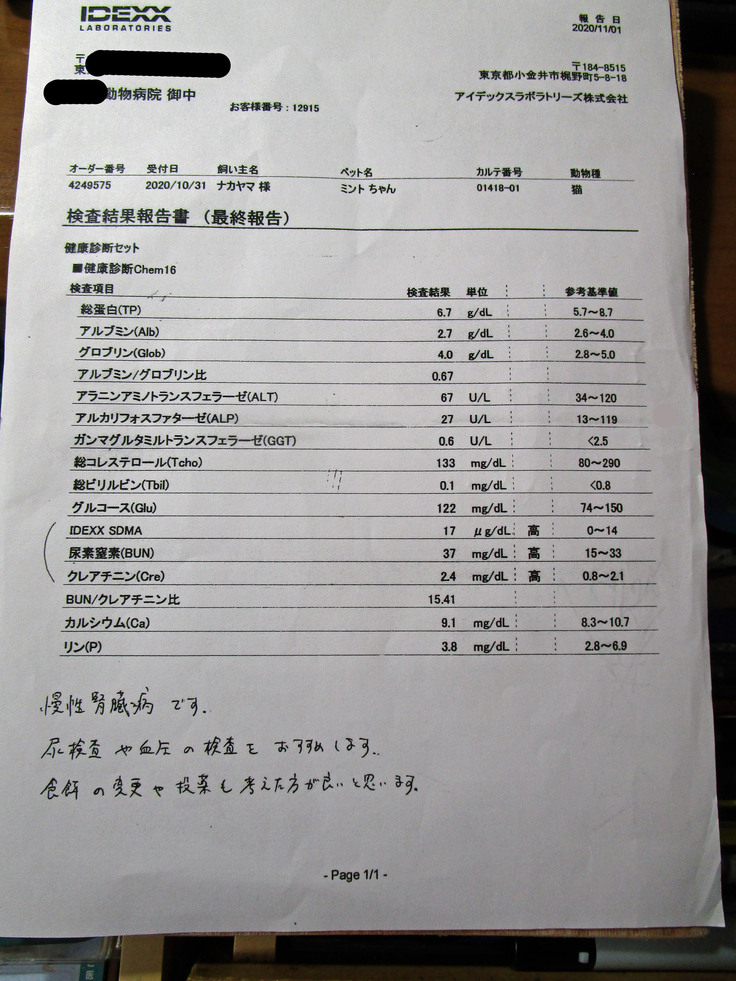 IDEXX
LABORATORIES
報告日
2020/11/01
〒
東
動物病院 御中
お客様番号：12915
〒184-8515
東京都小金井市梶野町5-8-18
アイデックスラボラトリーズ株式会社
オーダー番号 受付日 飼い主名 ペット名 カルテ番号 動物種
4249575 2020/10/31 ナカヤマ 様 ミント ちゃん 01418-01 猫
検査結果報告書 （最終報告）
健康診断セット
■健康診断Chem16
検査項目 検査結果 単位 参考基準値
総蛋白(TP) 6.7 g/dL 5.7～8.7
アルブミン(Alb) 2.7 g/dL 2.6～4.0
グロブリン(Glob) 4.0 g/dL 2.8～5.0
アルブミン/グロブリン比 0.67
アラニンアミノトランスフェラーゼ(ALT) 67 U/L 34～120
アルカリフォスファターゼ(ALP) 27 U/L 13～119
ガンマグルタミルトランスフェラーゼ(GGT) 0.6 U/L <2.5
総コレステロール(Tcho) 133 mg/dL 80～290
総ビリルビン(Tbil) 0.1 mg/dL <0.8
グルコース(Glu) 122 mg/dL 74～150
IDEXX SDMA 17 μg/dL 高 0～14
尿素窒素(BUN) 37 mg/dL 高 15～33
クレアチニン(Cre) 2.4 mg/dL 高 0.8～2.1
BUN/クレアチニン比 15.41
カルシウム(Ca) 9.1 mg/dL 8.3～10.7
リン(P) 3.8 mg/dL 2.8～6.9
慢性腎臓病 です。
尿検査 や血圧 の 検査を おすすめ します。
食餌 の 変更 や 投薬も 考えた方が良いと思います。
- Page 1/1 -